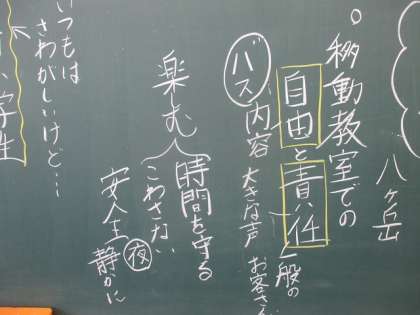 八ヶ岳
。移動教室での
自由と責任
一般の
お客さん
バス 内容 大きな声
楽しむ
時間を守る
こわさない
夜 静かに
安全
いつもは
さわがしいけど…